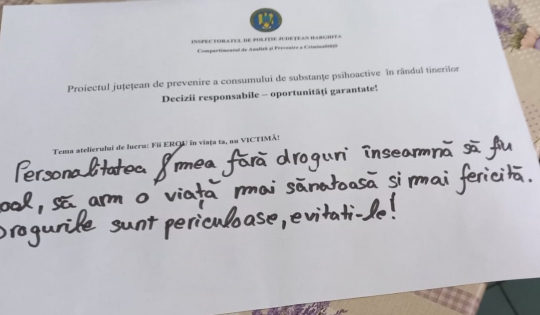 INSPECTORATUL DE POLIȚIE JUDEȚEAN HARGHITA
Compartimentul de Analiză și Prevenire a Criminalității
Proiectul juțețean de prevenire a consumului de substanțe psihoactive în rândul tinerilor
Decizii responsabile – oportunități garantate!
Tema atelierului de lucru: Fii EROU în viața ta, nu VICTIMĂ!
Personalitatea mea fără droguri înseamnă să fiu
ool, să arm o viață mai sănatoasă si mai fericită.
Drogurile sunt periculoase, evitati-le!